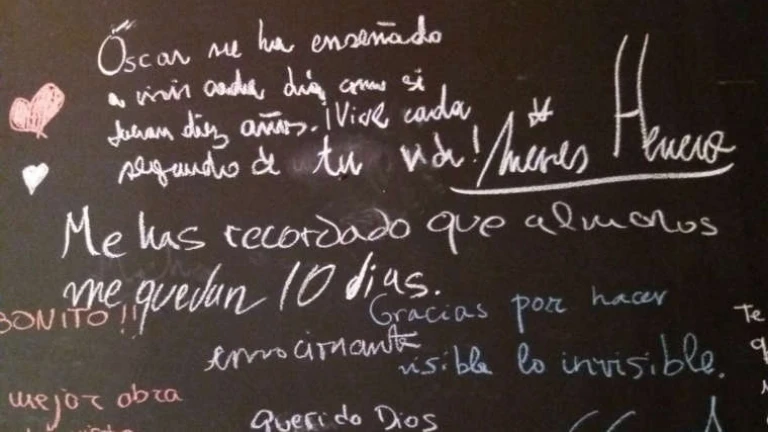 Óscar me ha enseñado
a vivir cada día como si
fueran diez años. ¡Vive cada
segundo de tu vida!
Me has recordado que al menos
me quedan 10 dias.
BONITO!!
Gracias por hacer
visible lo invisible.
emocionante
mejor obra
Querido Dios
Te